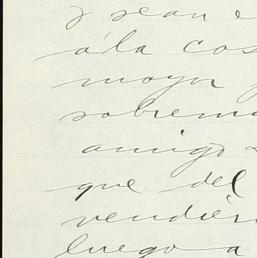 y sean e
á la cos
mayor y
sobrema
amigo
que del
vendién
luego a